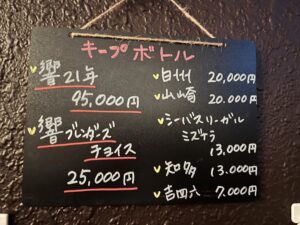 キープボトル
響21年
95,000円
響ブレンダーズ
チョイス
25,000円
白州 20,000円
山崎 20.000円
シーバスリーガル
ミズナラ
13,000円
知多 13.000円
吉四六 7.000円